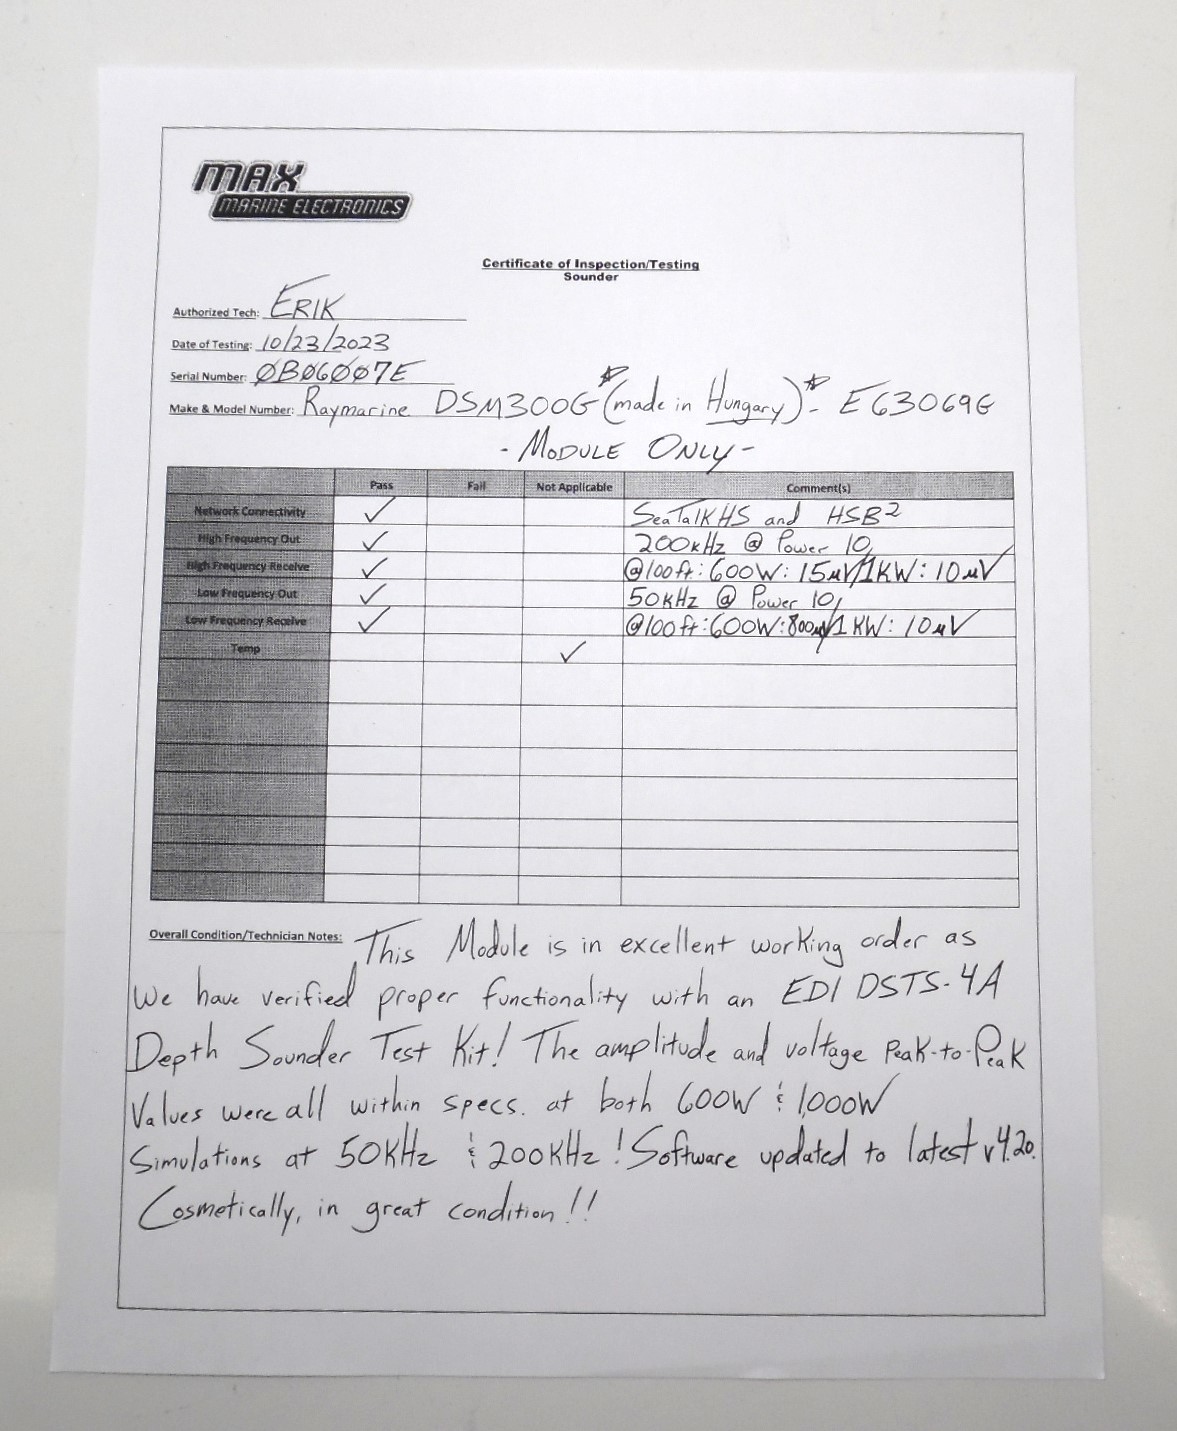 MAX
MARINE ELECTRONICS
Certificate of Inspection/Testing
Sounder
Authorized Tech: ERIK
Date of Testing: 10/23/2023
Serial Number: ØBØ6ØØ7E
Make & Model Number: Raymarine DSM300G (made in Hungary) - E63069G
- MODULE ONLY -
Pass Fail Not Applicable Comment(s)
Network Connectivity ✓ SeaTalkHS and HSB²
High Frequency Out ✓ 200kHz @ Power 10
High Frequency Receive ✓ @100ft: 600W: 15µV/1KW: 10µV
Low Frequency Out ✓ 50kHz @ Power 10
Low Frequency Receive ✓ @100ft: 600W: 800µV/1KW: 10µV
Temp ✓
Overall Condition/Technician Notes: This Module is in excellent working order as
We have verified proper functionality with an EDI DSTS-4A
Depth Sounder Test Kit! The amplitude and voltage Peak-to-Peak
Values were all within specs. at both 600W & 1,000W
Simulations at 50KHz & 200KHz! Software updated to latest v4.20.
Cosmetically, in great condition!!